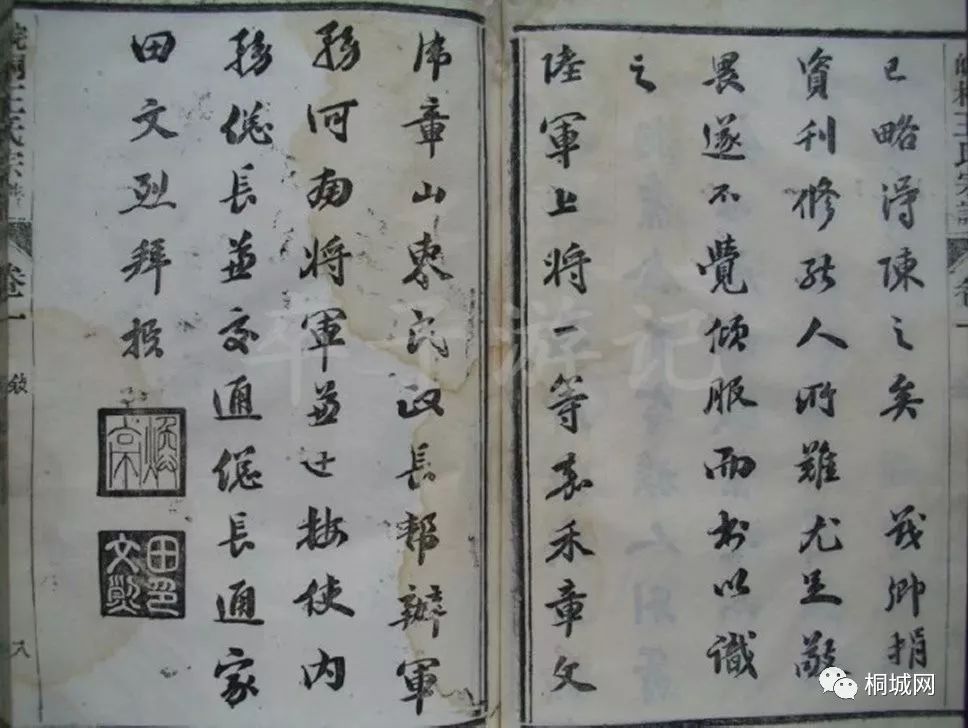 皖桐王氏宗譜 卷一
已略淂陳之矣 茂卿捐
資刊修能人所難尤足敬
畏遂不覺傾服而書以識
之
陸軍上將一等嘉禾章文
虎章山東民政長帮辦軍
務河南將軍兼巡按使內
務總長兼交通總長通家
田文烈拜撰
煥亭
田文烈印
皖桐王氏宗譜 卷一 敘 八
游记
桐城网